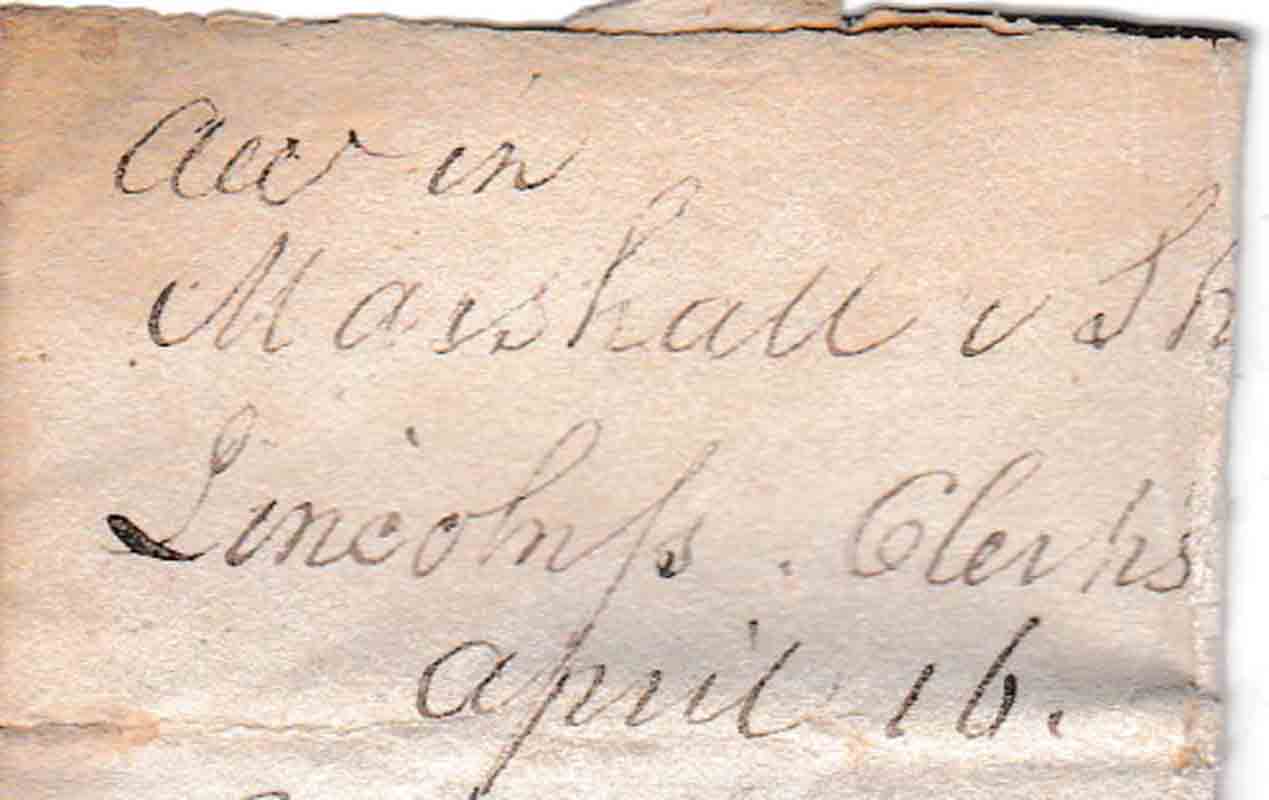 in
Marshall v Sh
Lincoln ss. Clerks
April 16.